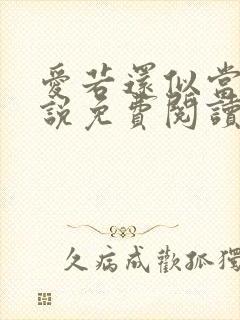 愛若還似當
說免費閱讀
久病成歡孤獨